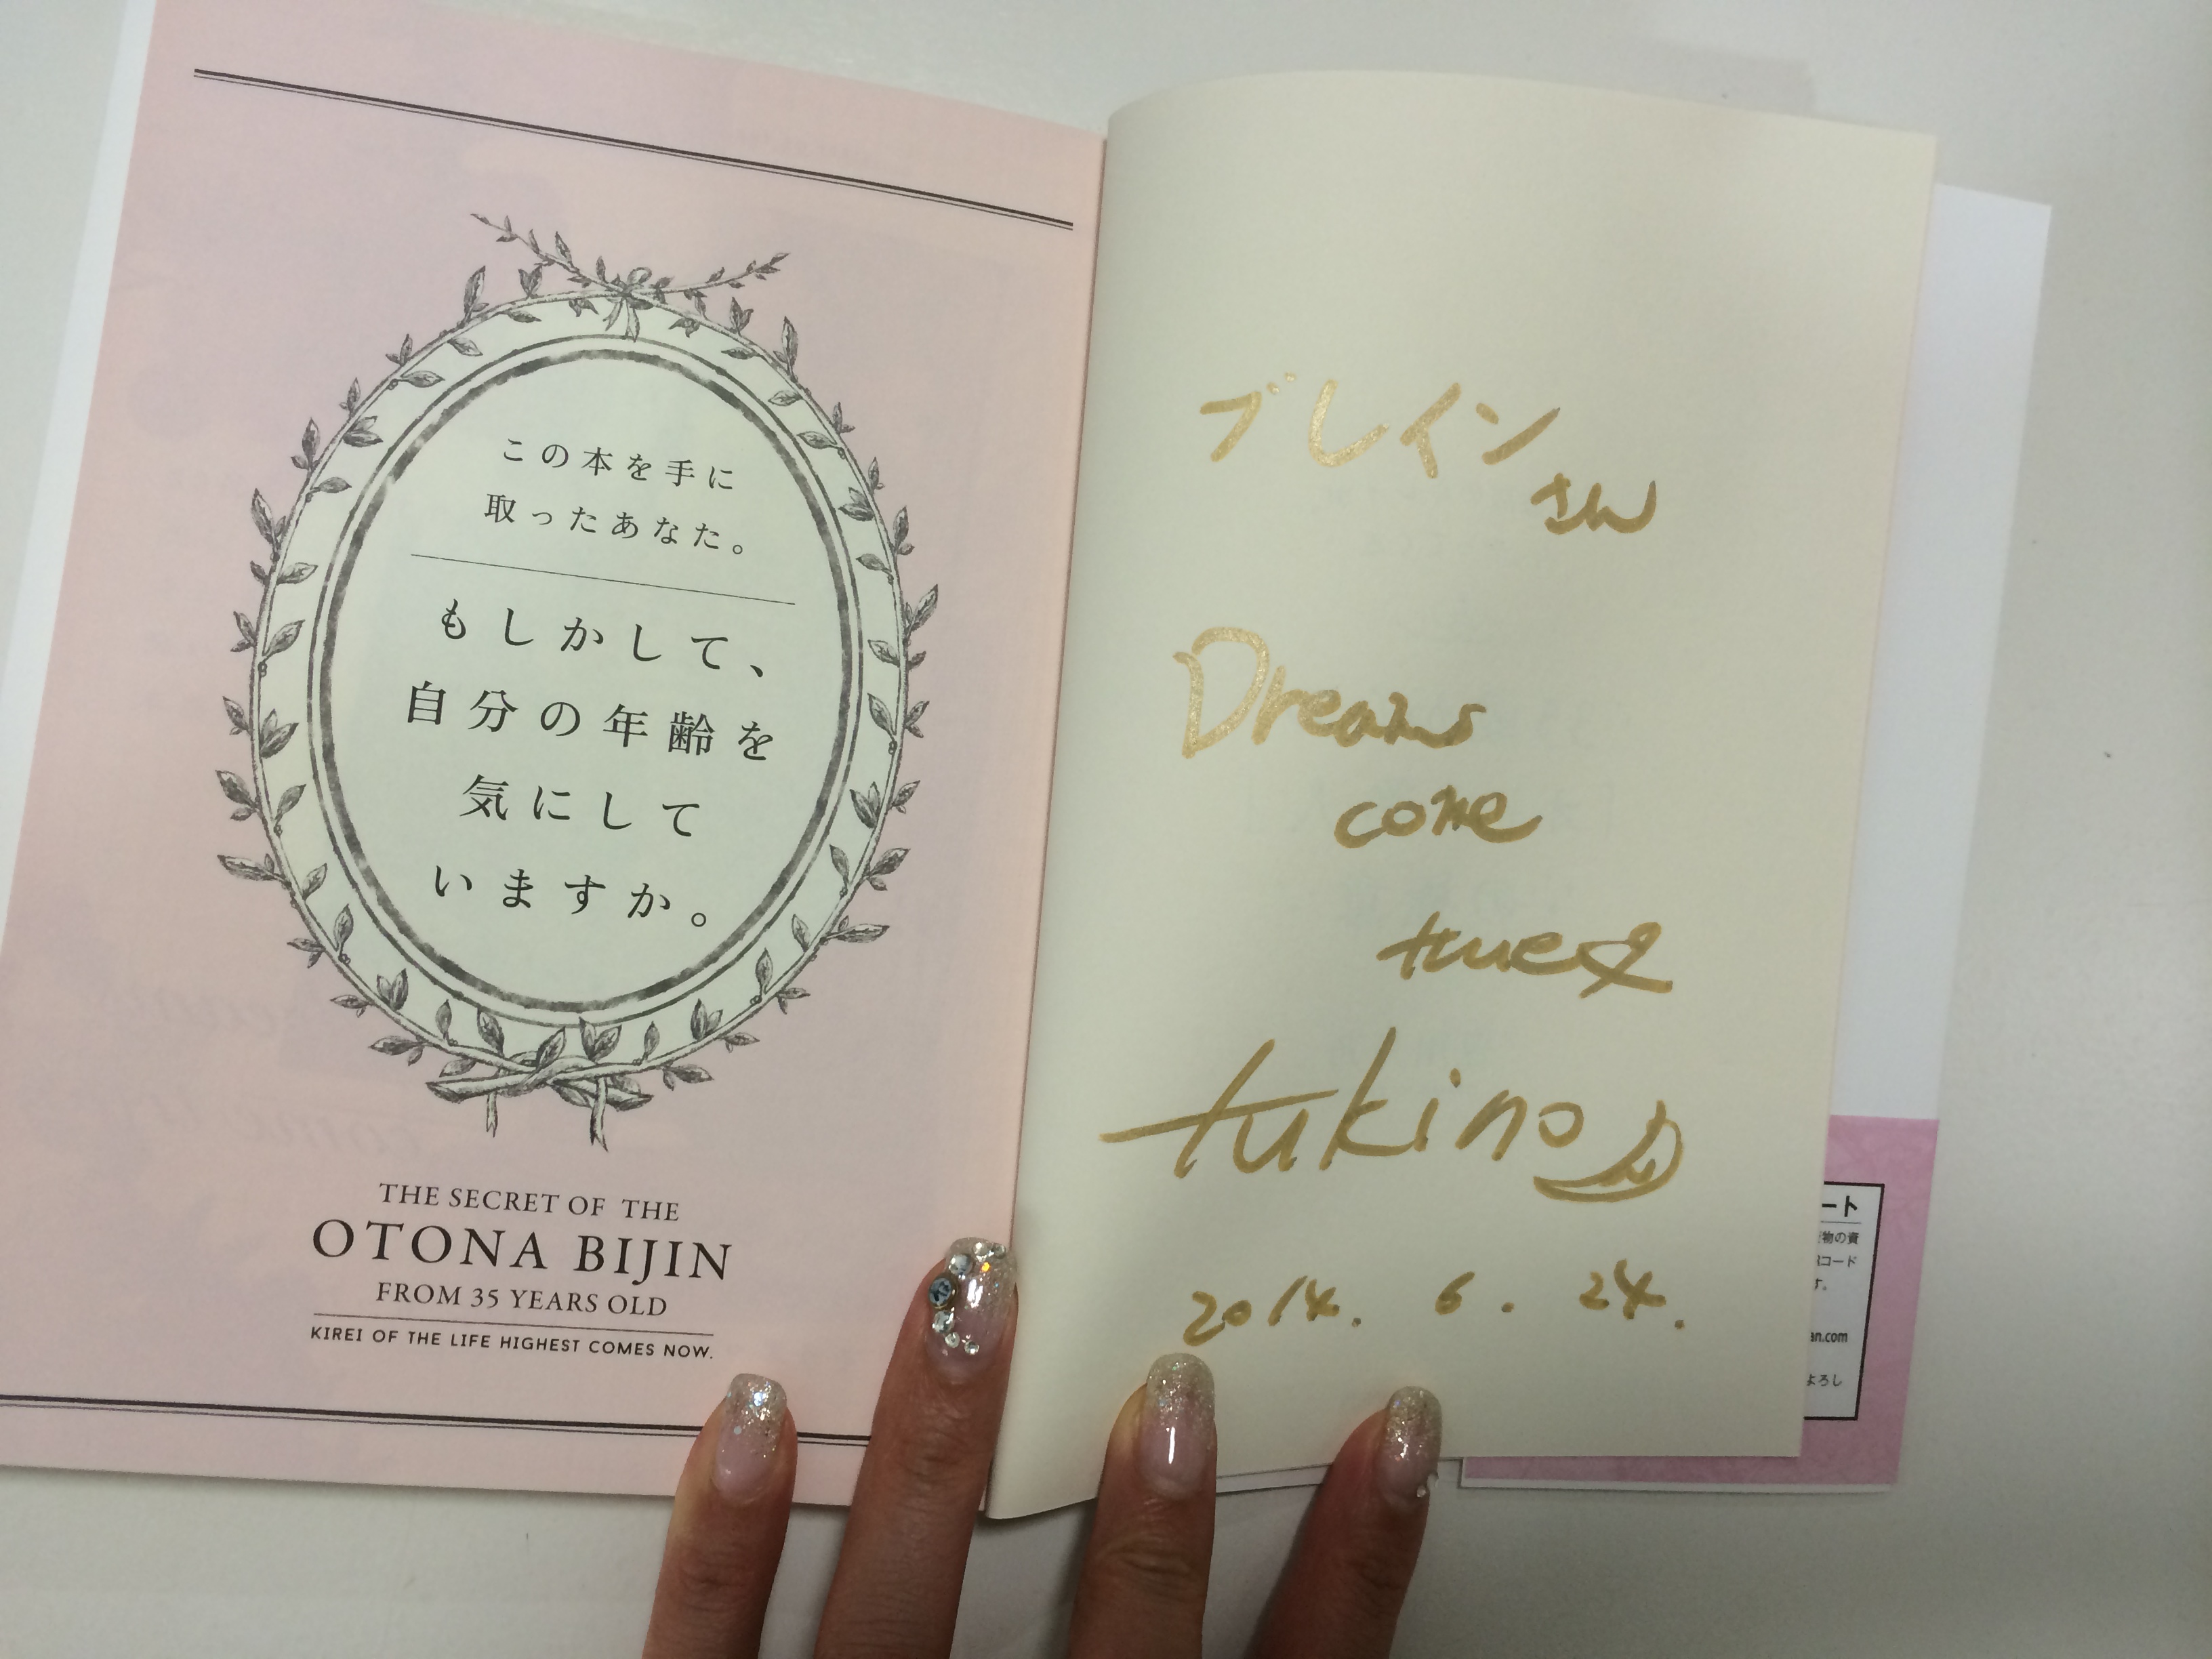 この本を手に
取ったあなた。
もしかして、
自分の年齢を
気にして
いますか。
THE SECRET OF THE
OTONA BIJIN
FROM 35 YEARS OLD
KIREI OF THE LIFE HIGHEST COMES NOW.
ブレイン
さん
Dreams
come
true
tukino
2014. 6. 24.
ート
物の資
コード
す。
an.com
よろし